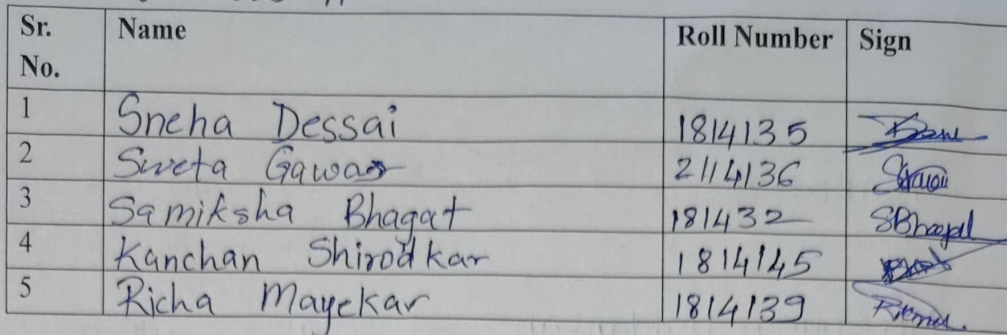 Sr. No. Name Roll Number Sign
1 Sneha Dessai 1814135
2 Sweta Gawas 2114136
3 Samiksha Bhagat 181432 SBhagat
4 Kanchan Shirodkar 1814145
5 Richa Mayekar 1814139